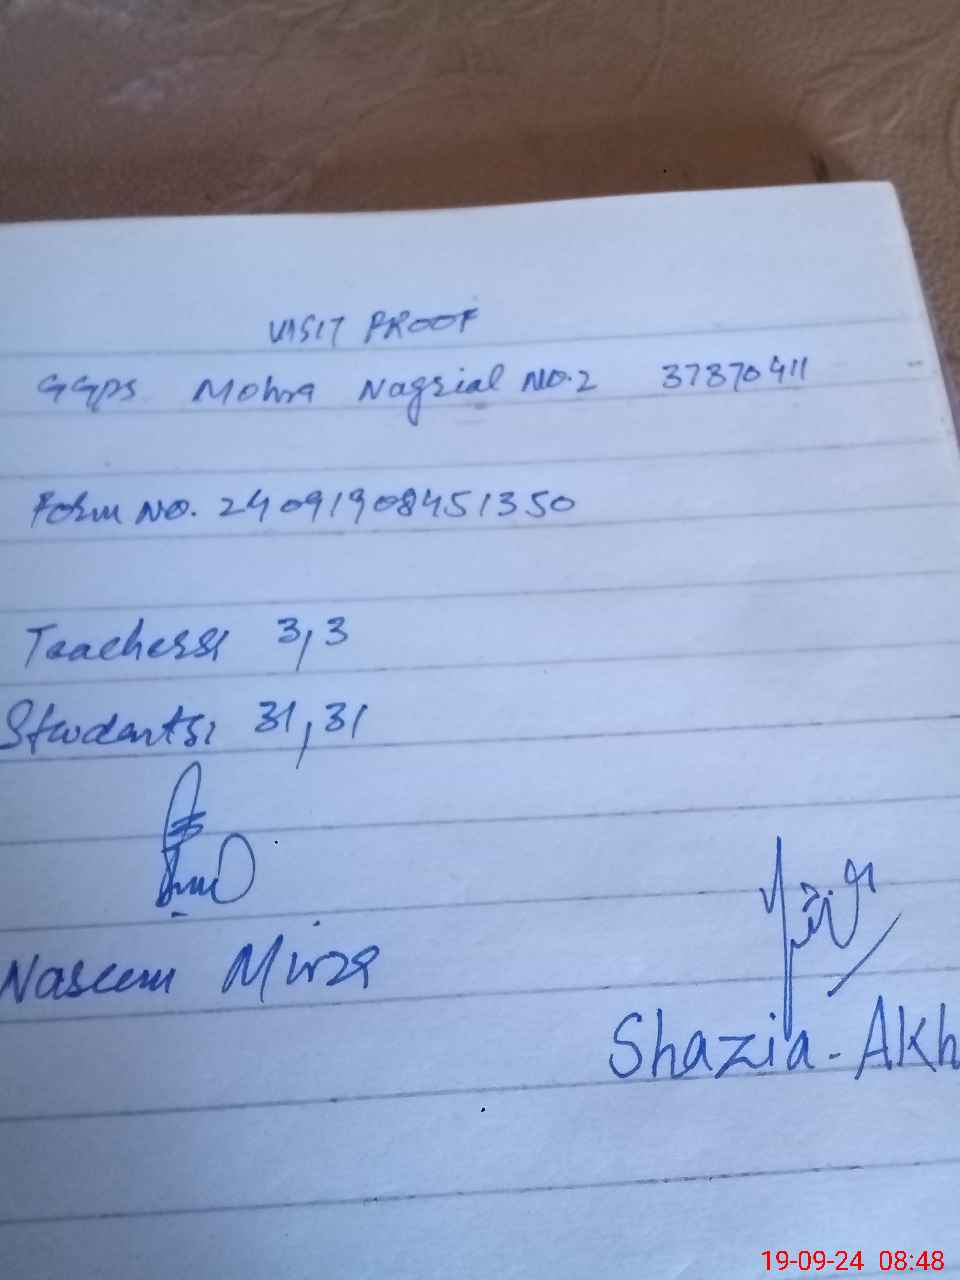 VISIT PROOF
GGPS Mohra Nagrial NO.2 37370411
Form NO. 24091908451350
Teachers: 3,3
Students: 31,31
Naseem Mirza
Shazia-Akh
19-09-24 08:48